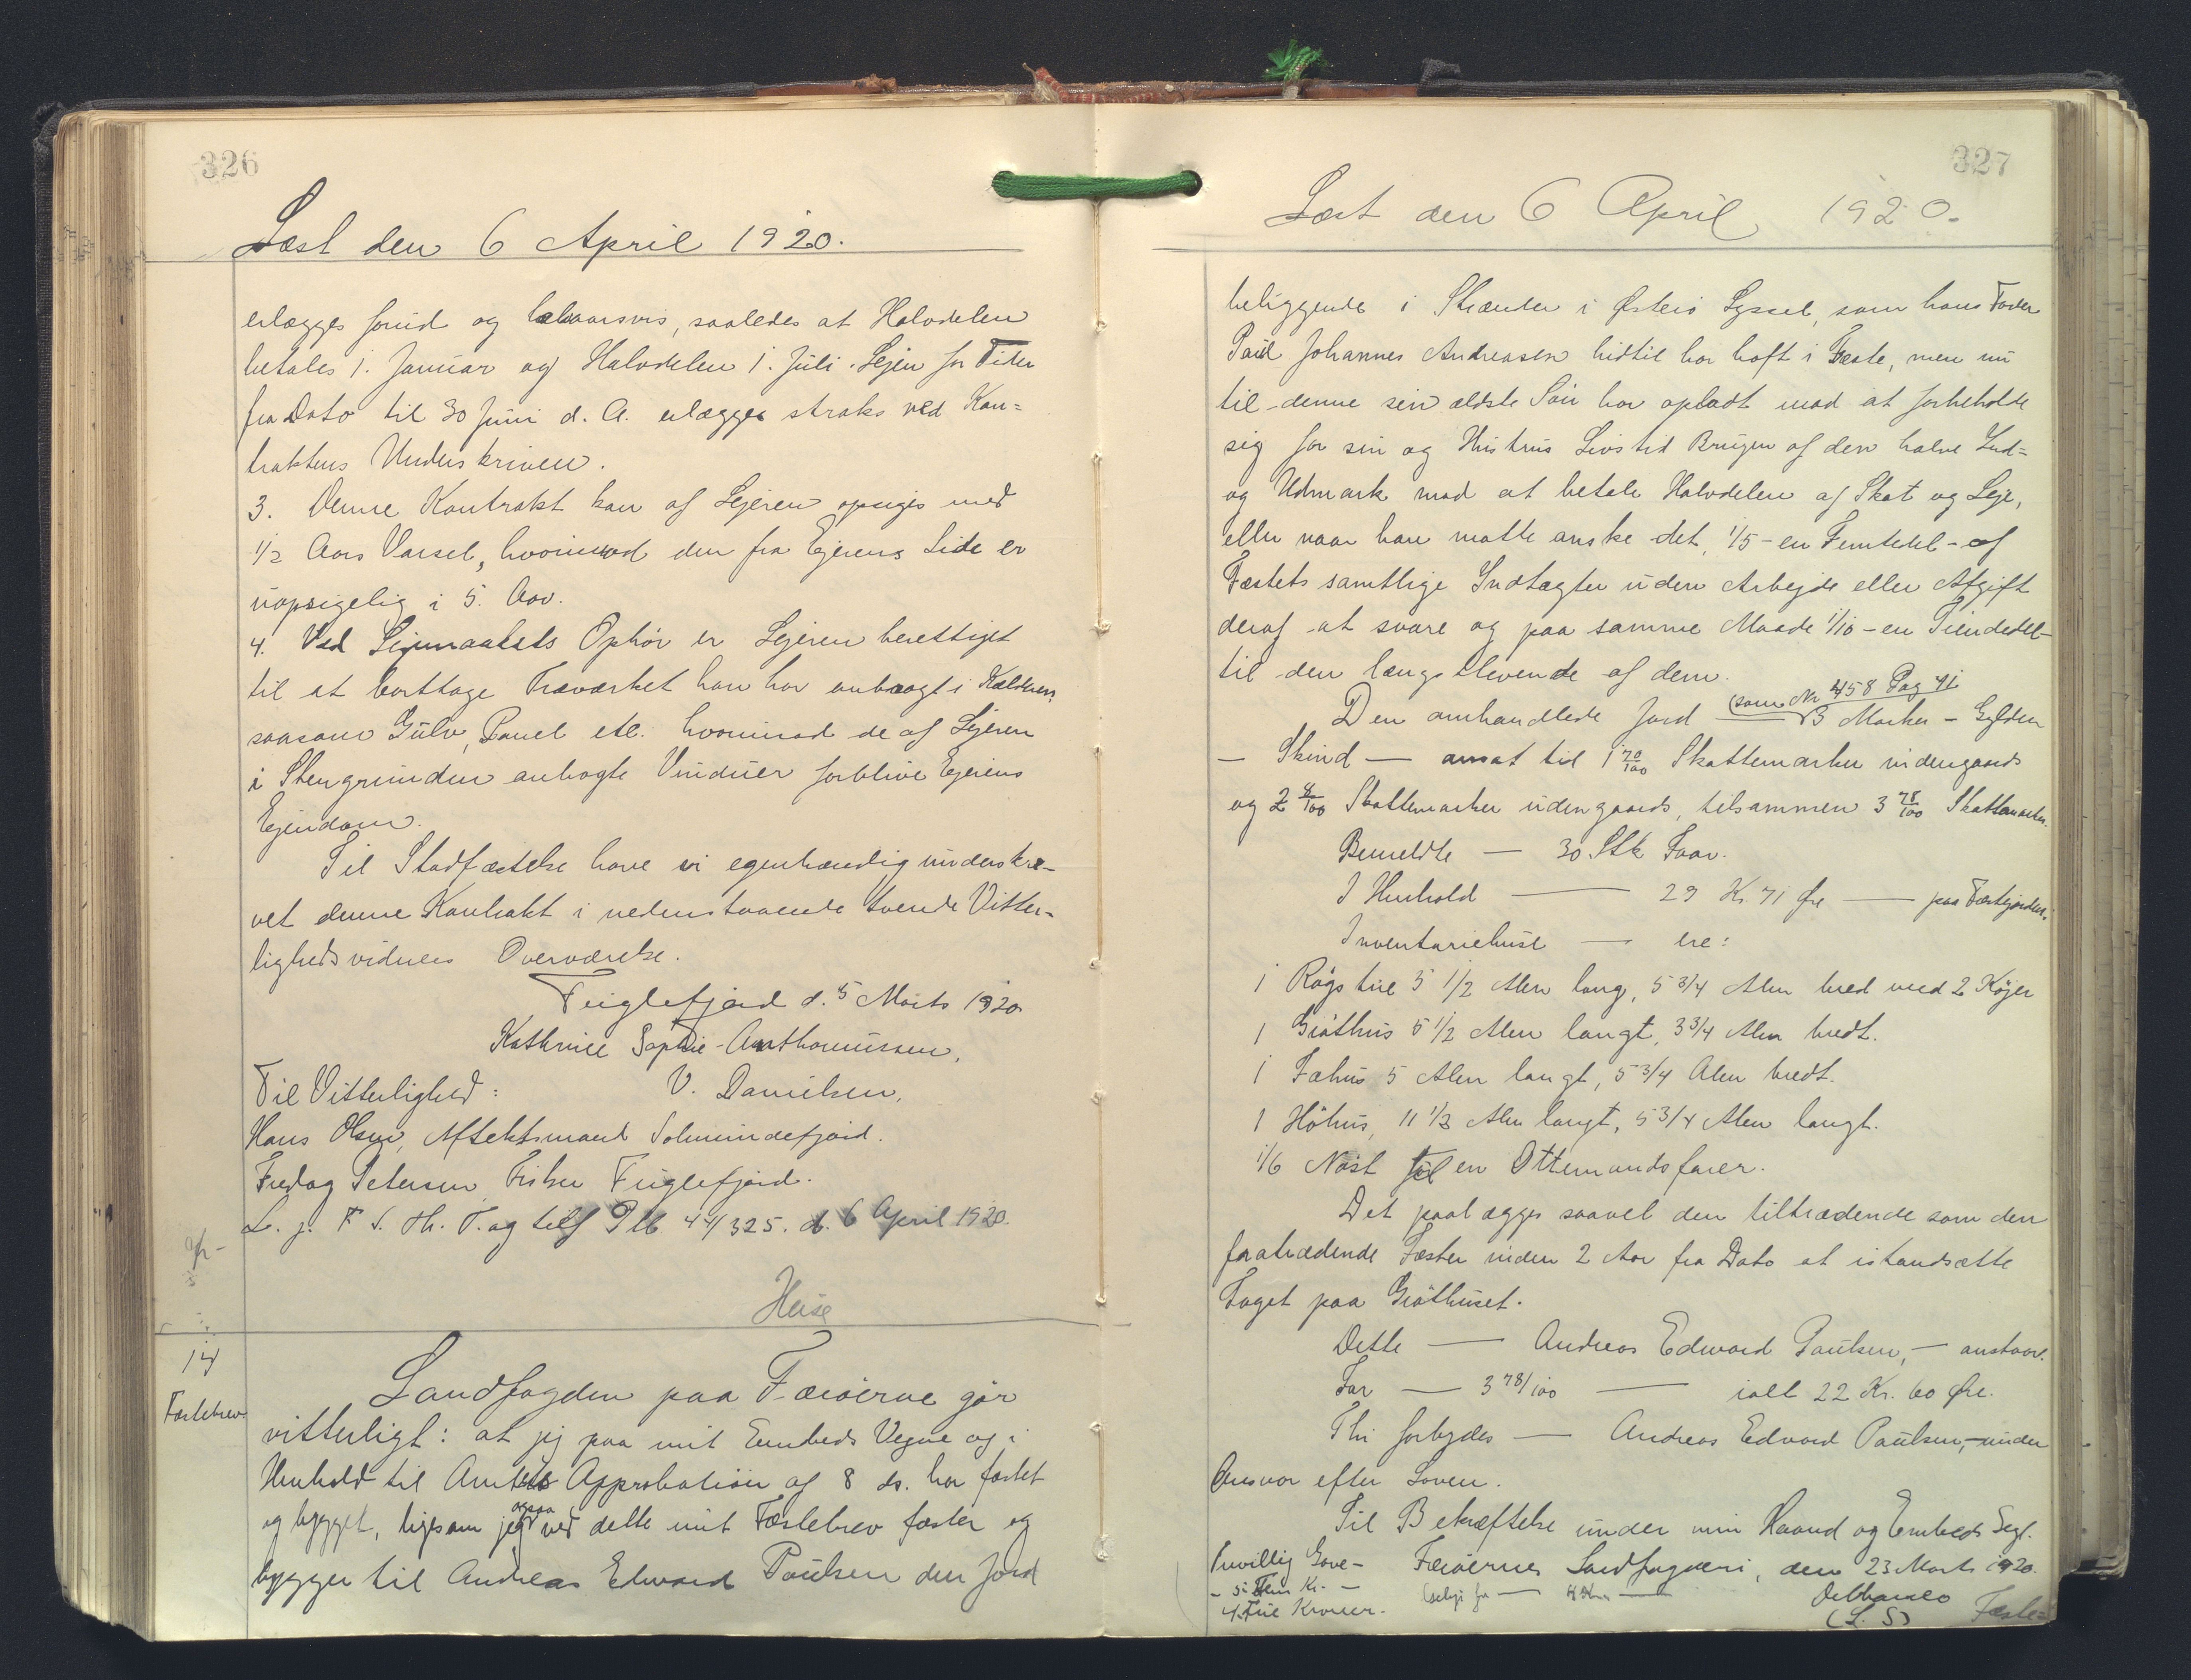 326
Læst den 6 April 1920.
erlægges forud og halvaarsvis, saaledes at Halvdelen
betales 1. Januar og Halvdelen 1. Juli. Lejen for Tiden
fra Dato til 30 Juni d. A. erlægges straks ved Kon=
traktens Underskriven.
3. Denne Kontrakt kan af Lejeren opsiges med
1/2 Aars Varsel, hvorimod den fra Ejerens Side er
uopsigelig i 5. Aar.
4. Ved Lejemaalets Ophør er Lejeren berettiget
til at borttage Træværket han har anbragt i Kælderen,
saasom Gulv, Panel etc. hvorimod de af Lejeren
i Stengrunden anbragte Vinduer forblive Ejerens
Ejendom.
Til Stadfæstelse have vi egenhændig underskre-
vet denne Kontrakt i nedenstaaende tvende Vitter-
lighedsvidners Overværelse.
Fuglefjord d. 5 Marts 1920.
Kathrine Sophie Anthoniussen,
Til Vitterlighed: V. Danielsen,
Hans Olsen, Aftektsmand Solmundefjord.
Fredag Petersen, Fisker Fuglefjord.
L. j. F S. Th. T. og tilf Plb 44/325. d. 6 April 1920.
Heise
14
Fæstebrev
Landfogden paa Færøerne gør
vitterligt: at jeg paa mit Embeds Vegne og i
Henhold til Amtets Approbation af 8 ds. har fæstet
og bygget, ligesom jeg ogsaa ved dette mit Fæstebrev fæster og
bygger til Andreas Edward Poulsen den Jord
327
Læst den 6 April 1920.
beliggende i Strænder i Østerø Syssel, som hans Fader
Poul Johannes Andreasen hidtil har haft i Fæste, men nu
til denne sin ældste Søn har opladt mod at forbeholde
sig for sin og Hustrus Livstid Brugen af den halve Ind=
og Udmark mod at betale Halvdelen af Skat og Leje,
eller naar han maatte ønske det, 1/5 - en Femtedel - af
Fæstets samtlige Indtægter uden Arbejde eller Afgift
deraf at svare og paa samme Maade 1/10 - en Tiendedel -
til den længstlevende af dem.
Den omhandlede Jord (som Nr 458 Pag 41 3 Marker - Gylden
- Skind - ansat til 1 70/100 Skattemarker indengaards
og 2 8/100 Skattemarker udengaards, tilsammen 3 78/100 Skattemarker.
Bemeldte - 30 Stk Faar.
I Henhold - 29 Kr. 71 Øre - paa Fæstejorden.
Inventariehuse - ere:
1 Røgstue 5 1/2 Alen lang, 5 3/4 Alen bred med 2 Køjer
1 Gróthus 5 1/2 Alen langt, 3 3/4 Alen bredt.
1 Fæhus 5 Alen langt, 5 3/4 Alen bredt.
1 Höhus, 11 1/3 Alen langt, 5 3/4 Alen langt.
1/6 Nøst til en Ottemandsfarer.
Det paalægges saavel den tiltrædende som den
fratrædende Fæster inden 2 Aar fra Dato at istandsætte
Taget paa Gróthuset.
Dette - Andreas Edward Poulsen, - anstaar.
For - 3 78/100 - ialt 22 Kr. 60 Øre.
Thi forbydes - Andreas Edvard Poulsen, - under
Ansvar efter Loven.
Til Bekræftelse under min Haand og Embeds Segl.
Færøernes Landfogderi, den 23 Marts 1920.
Frivillig Gave -
- 5 Fem Kr. -
4. Fire Kroner.
(L. S)
Fæste-